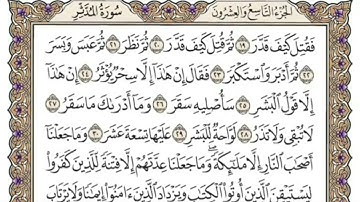 الجزء التاسع والعشرون
سورة المدثر
فَقُتِلَ كَيْفَ قَدَّرَ ١٩ ثُمَّ قُتِلَ كَيْفَ قَدَّرَ ٢٠ ثُمَّ نَظَرَ ٢١ ثُمَّ عَبَسَ وَبَسَرَ
٢٢ ثُمَّ أَدْبَرَ وَٱسْتَكْبَرَ ٢٣ فَقَالَ إِنْ هَٰذَآ إِلَّا سِحْرٌ يُؤْثَرُ ٢٤ إِنْ هَٰذَآ
إِلَّا قَوْلُ ٱلْبَشَرِ ٢٥ سَأُصْلِيهِ سَقَرَ ٢٦ وَمَآ أَدْرَىٰكَ مَا سَقَرُ ٢٧
لَا تُبْقِى وَلَا تَذَرُ ٢٨ لَوَّاحَةٌ لِّلْبَشَرِ ٢٩ عَلَيْهَا تِسْعَةَ عَشَرَ ٣٠ وَمَا جَعَلْنَآ
أَصْحَٰبَ ٱلنَّارِ إِلَّا مَلَٰٓئِكَةً وَمَا جَعَلْنَا عِدَّتَهُمْ إِلَّا فِتْنَةً لِّلَّذِينَ كَفَرُوا۟
لِيَسْتَيْقِنَ ٱلَّذِينَ أُوتُوا۟ ٱلْكِتَٰبَ وَيَزْدَادَ ٱلَّذِينَ ءَامَنُوٓا۟ إِيمَٰنًا وَلَا يَرْتَابَ